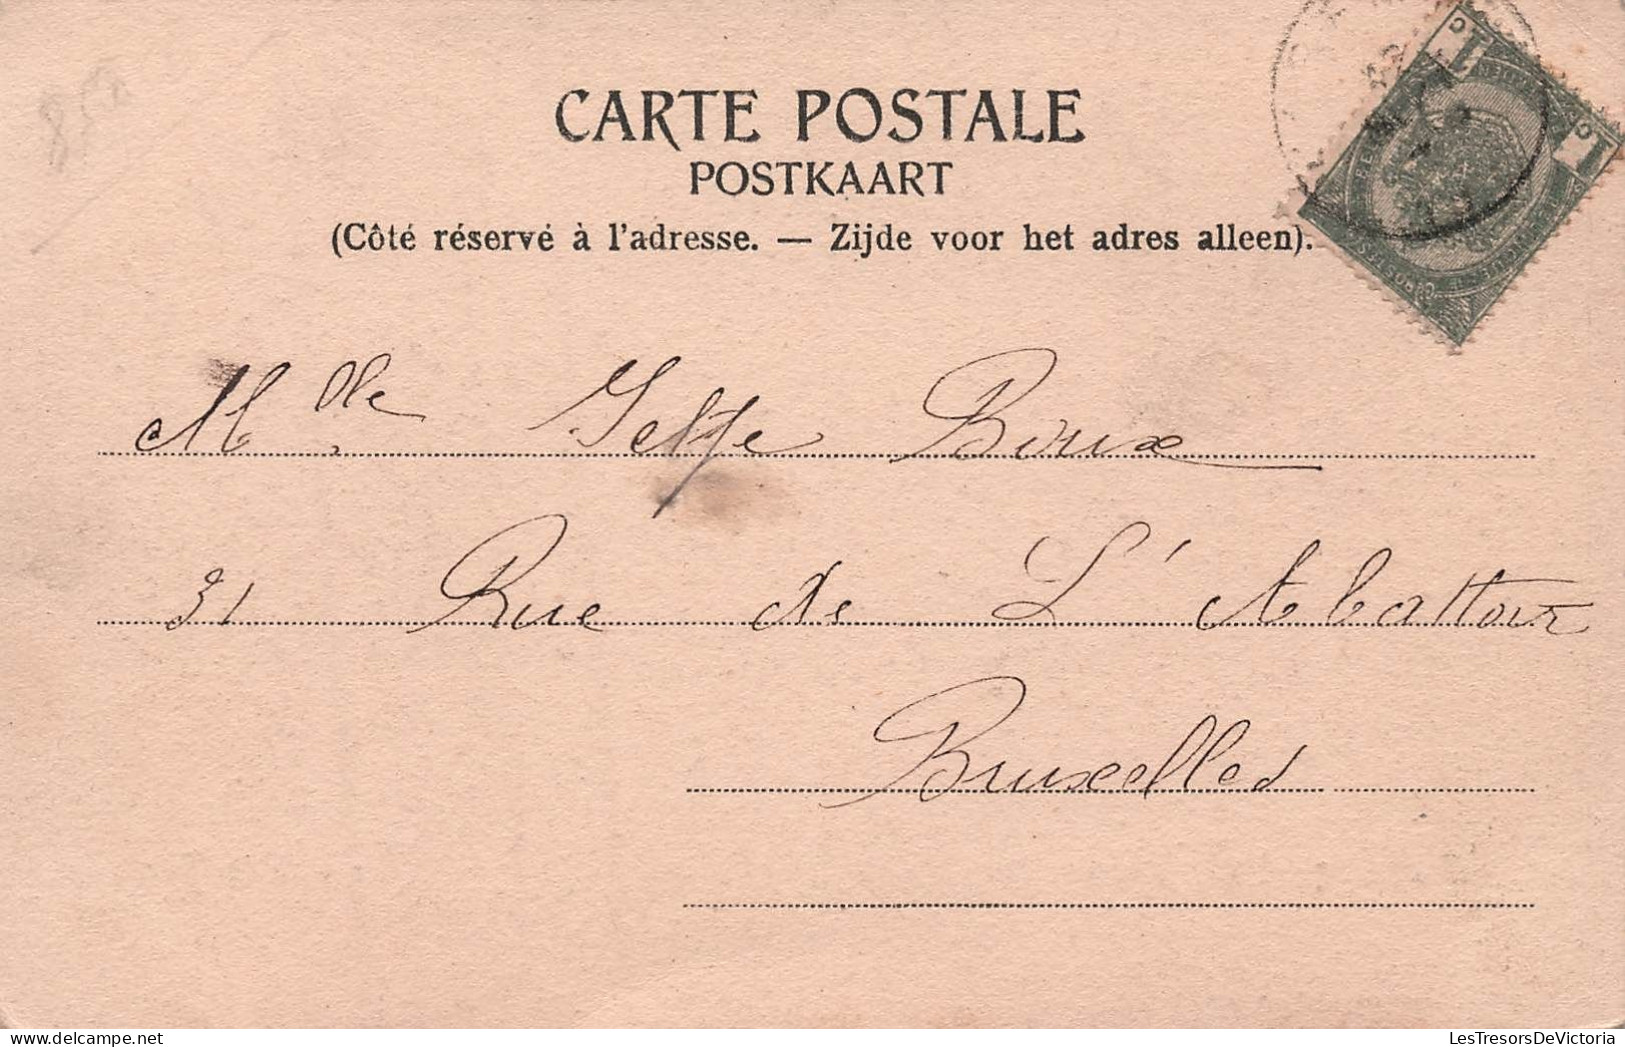 85
CARTE POSTALE
POSTKAART
(Côté réservé à l'adresse. — Zijde voor het adres alleen).
Mlle Roux
31 Rue de L'Abattoir
Bruxelles
LesTresorsDeVictoria.com